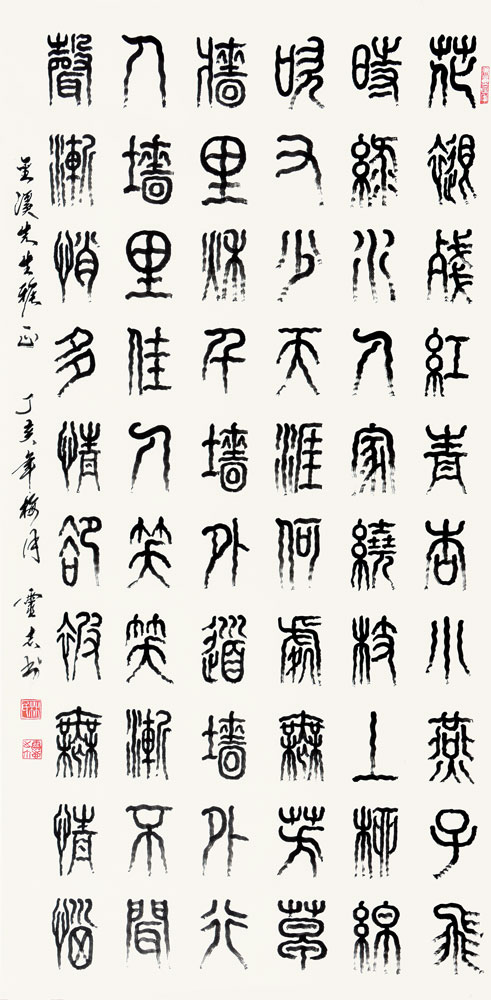 花褪殘紅青杏小燕子飛
時綠水人家繞枝上柳綿
吹又少天涯何處無芳草
牆里秋千墻外道墻外行
人墻里佳人笑笑漸不間
聲漸悄多情卻被無情惱
溪先生雅正 丁亥年梅月 志书